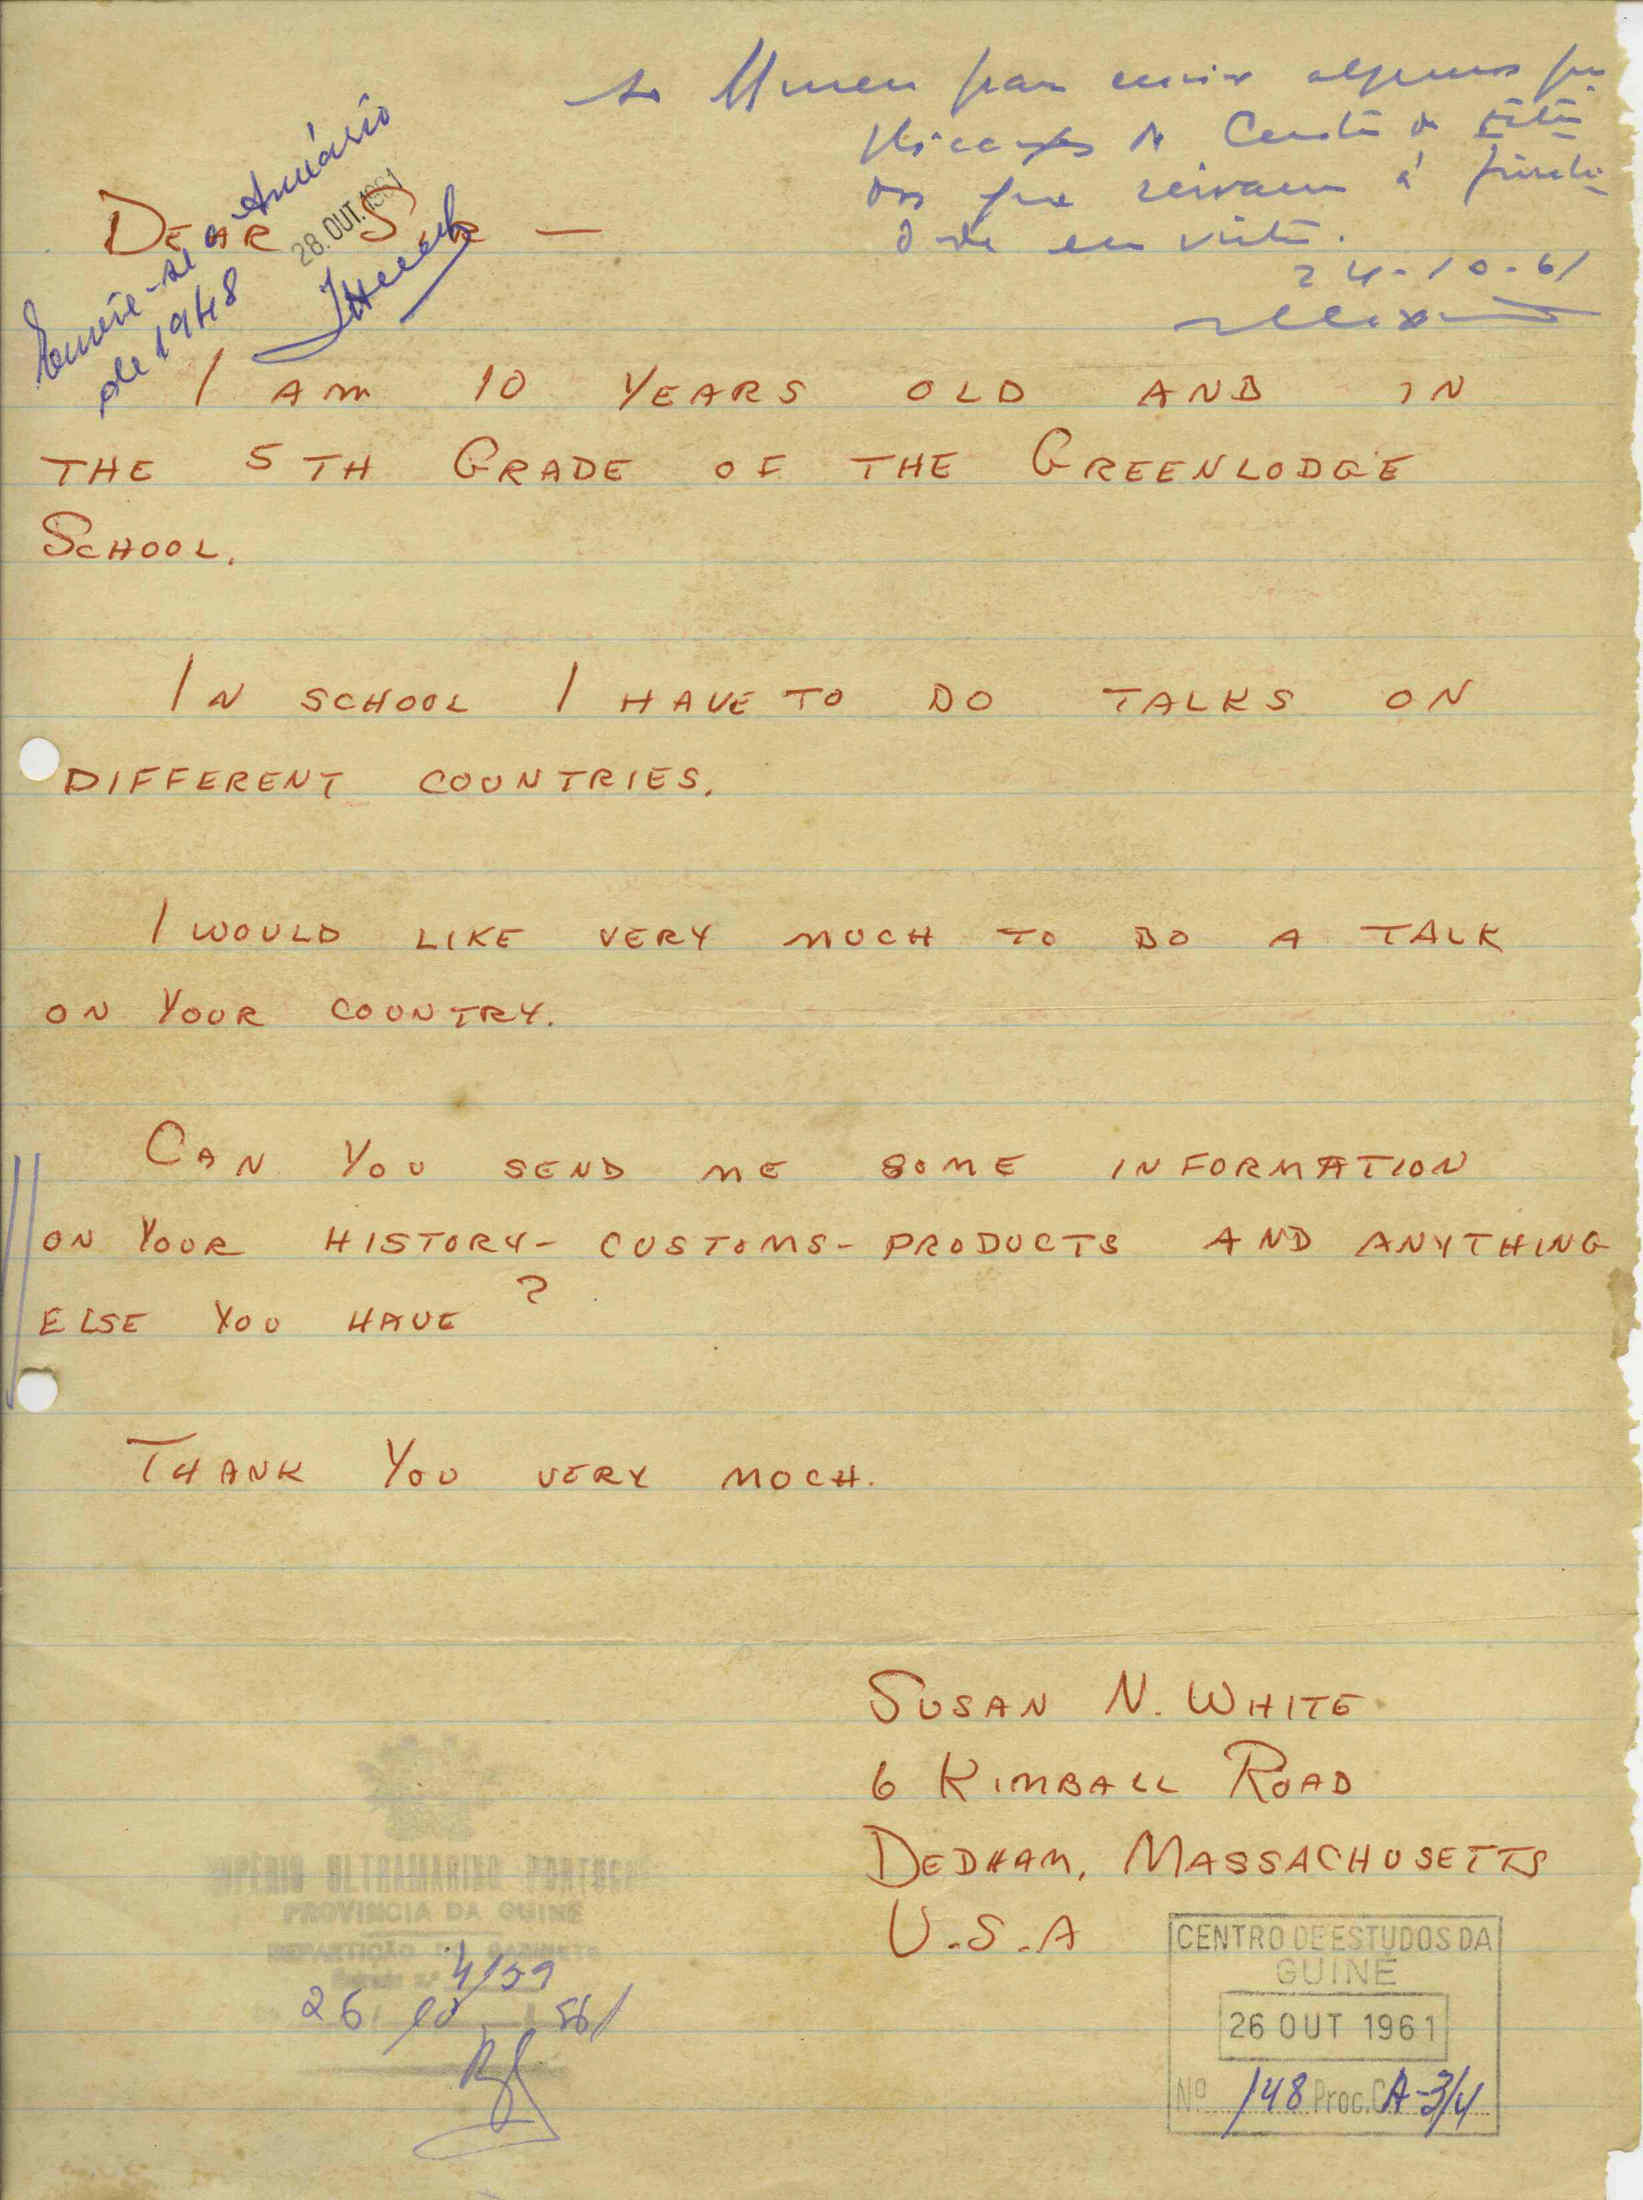 Museu para enviar algumas
Centro de
que
em vista.
24-10-61
Envie-se o Anuário
de 1948
28.OUT.1961
DEAR SIR —
I AM 10 YEARS OLD AND IN
THE 5TH GRADE OF THE GREENLODGE
SCHOOL.
IN SCHOOL I HAVE TO DO TALKS ON
DIFFERENT COUNTRIES.
I WOULD LIKE VERY MUCH TO DO A TALK
ON YOUR COUNTRY.
CAN YOU SEND ME SOME INFORMATION
ON YOUR HISTORY- CUSTOMS- PRODUCTS AND ANYTHING
ELSE YOU HAVE?
THANK YOU VERY MUCH.
SUSAN N. WHITE
6 KIMBALL ROAD
DEDHAM, MASSACHUSETTS
U.S.A
IMPÉRIO ULTRAMARINO PORTUGUÊS
PROVÍNCIA DA GUINÉ
REPARTIÇÃO DO GABINETE
26 10 61
CENTRO DE ESTUDOS DA
GUINÉ
26 OUT 1961
Nº 148 Proc. CA-3/4